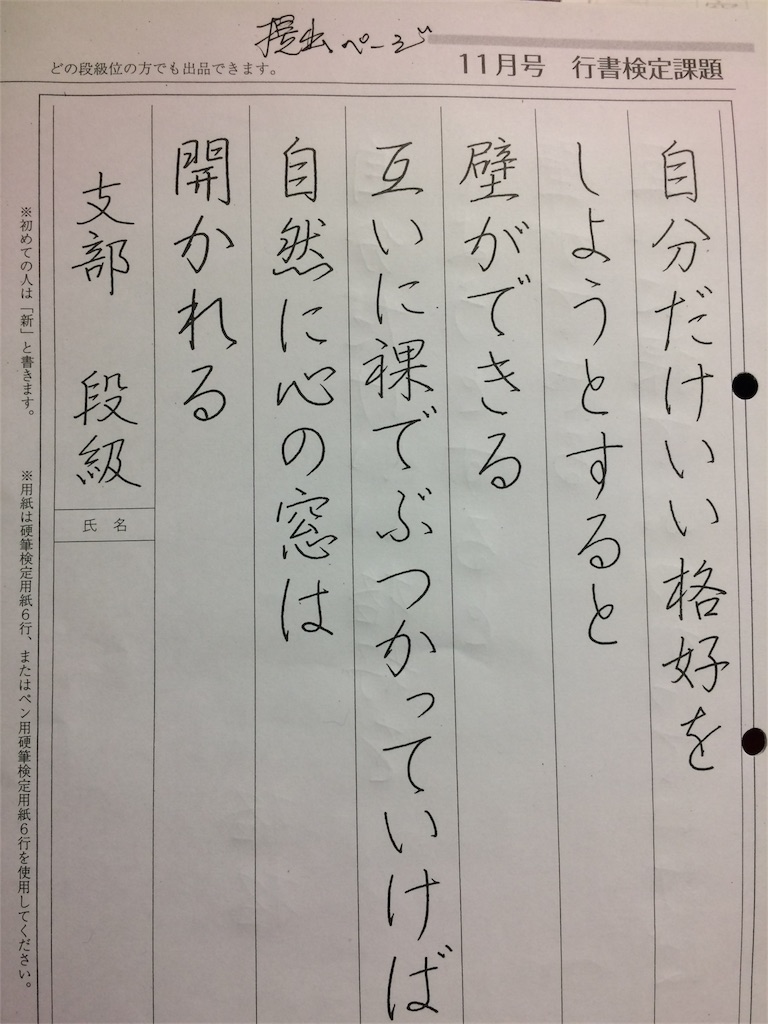 提出ページ
11月号 行書検定課題
どの段級位の方でも出品できます。
自分だけいい格好を
しようとすると
壁ができる
互いに裸でぶつかっていけば
自然に心の窓は
開かれる
支部 段級
氏名
※初めての人は「新」と書きます。
※用紙は硬筆検定用紙6行、またはペン用硬筆検定用紙6行を使用してください。